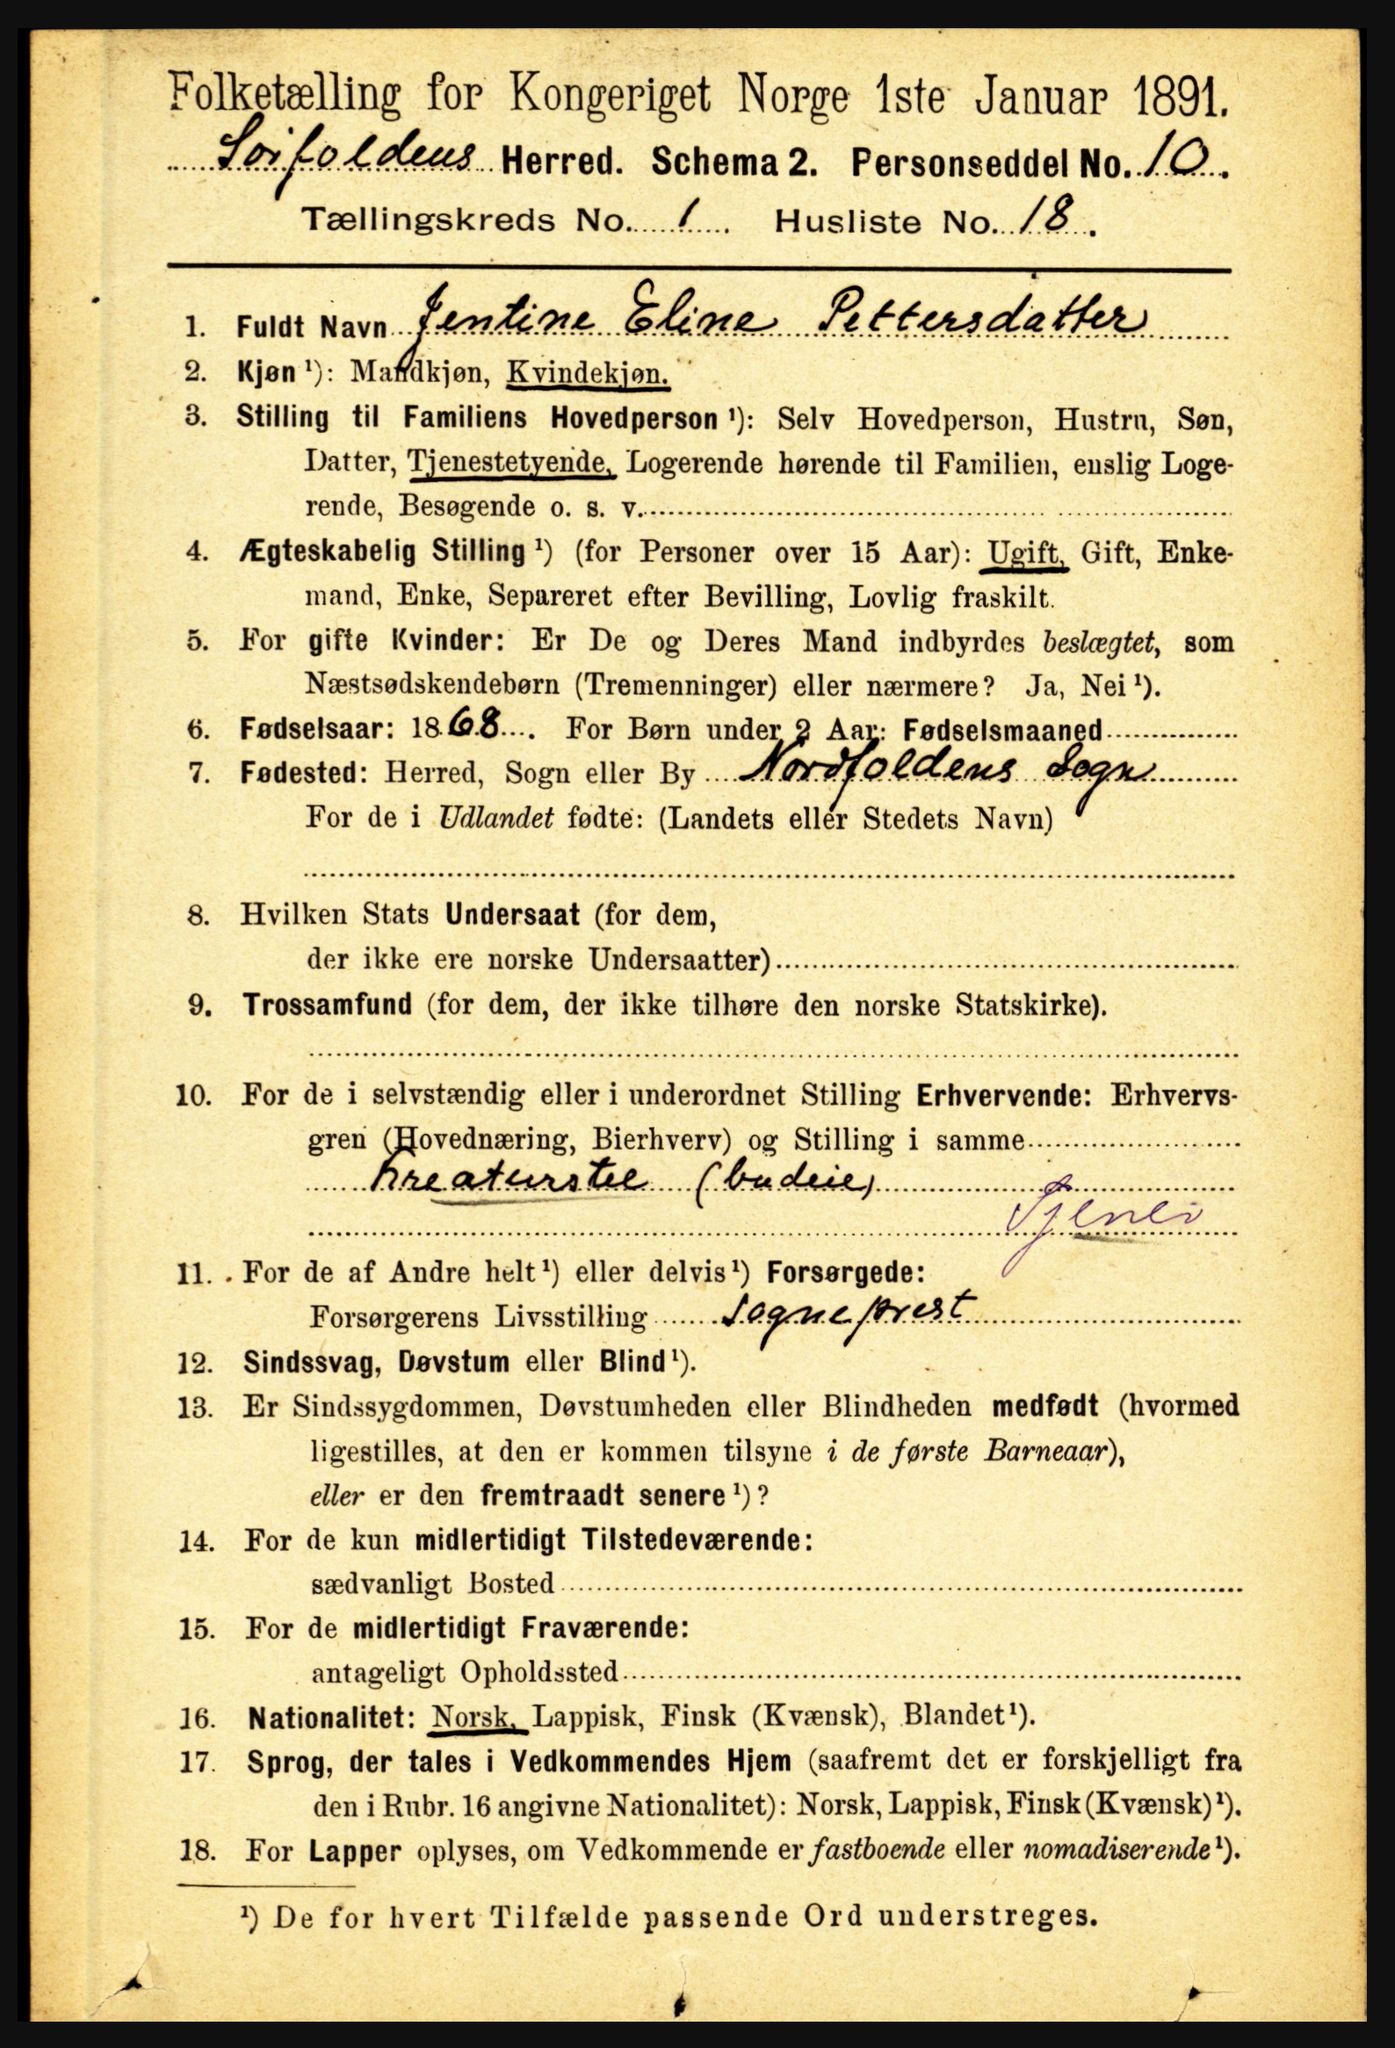 Folketælling for Kongeriget Norge 1ste Januar 1891.
Sørfoldens Herred. Schema 2. Personseddel No. 10.
Tællingskreds No. 1. Husliste No. 18.
1. Fuldt Navn Jentine Eline Pettersdatter
2. Kjøn ¹): Mandkjøn, Kvindekjøn.
3. Stilling til Familiens Hovedperson ¹): Selv Hovedperson, Hustru, Søn,
Datter, Tjenestetyende, Logerende hørende til Familien, enslig Loge-
rende, Besøgende o. s. v.
4. Ægteskabelig Stilling ¹) (for Personer over 15 Aar): Ugift, Gift, Enke-
mand, Enke, Separeret efter Bevilling, Lovlig fraskilt.
5. For gifte Kvinder: Er De og Deres Mand indbyrdes beslægtet, som
Næstsødskendebørn (Tremenninger) eller nærmere? Ja, Nei ¹).
6. Fødselsaar: 1868. For Børn under 2 Aar: Fødselsmaaned
7. Fødested: Herred, Sogn eller By Nordfoldens Sogn
For de i Udlandet fødte: (Landets eller Stedets Navn)
8. Hvilken Stats Undersaat (for dem,
der ikke ere norske Undersaatter)
9. Trossamfund (for dem, der ikke tilhøre den norske Statskirke).
10. For de i selvstændig eller i underordnet Stilling Erhvervende: Erhvervs-
gren (Hovednæring, Bierhverv) og Stilling i samme
Kreaturstel (budeie)
11. For de af Andre helt ¹) eller delvis ¹) Forsørgede:
Forsørgerens Livsstilling Sogneprest
12. Sindssvag, Døvstum eller Blind ¹).
13. Er Sindssygdommen, Døvstumheden eller Blindheden medfødt (hvormed
ligestilles, at den er kommen tilsyne i de første Barneaar),
eller er den fremtraadt senere ¹)?
14. For de kun midlertidigt Tilstedeværende:
sædvanligt Bosted
15. For de midlertidigt Fraværende:
antageligt Opholdssted
16. Nationalitet: Norsk, Lappisk, Finsk (Kvænsk), Blandet ¹).
17. Sprog, der tales i Vedkommendes Hjem (saafremt det er forskjelligt fra
den i Rubr. 16 angivne Nationalitet): Norsk, Lappisk, Finsk (Kvænsk) ¹).
18. For Lapper oplyses, om Vedkommende er fastboende eller nomadiserende ¹).
¹) De for hvert Tilfælde passende Ord understreges.